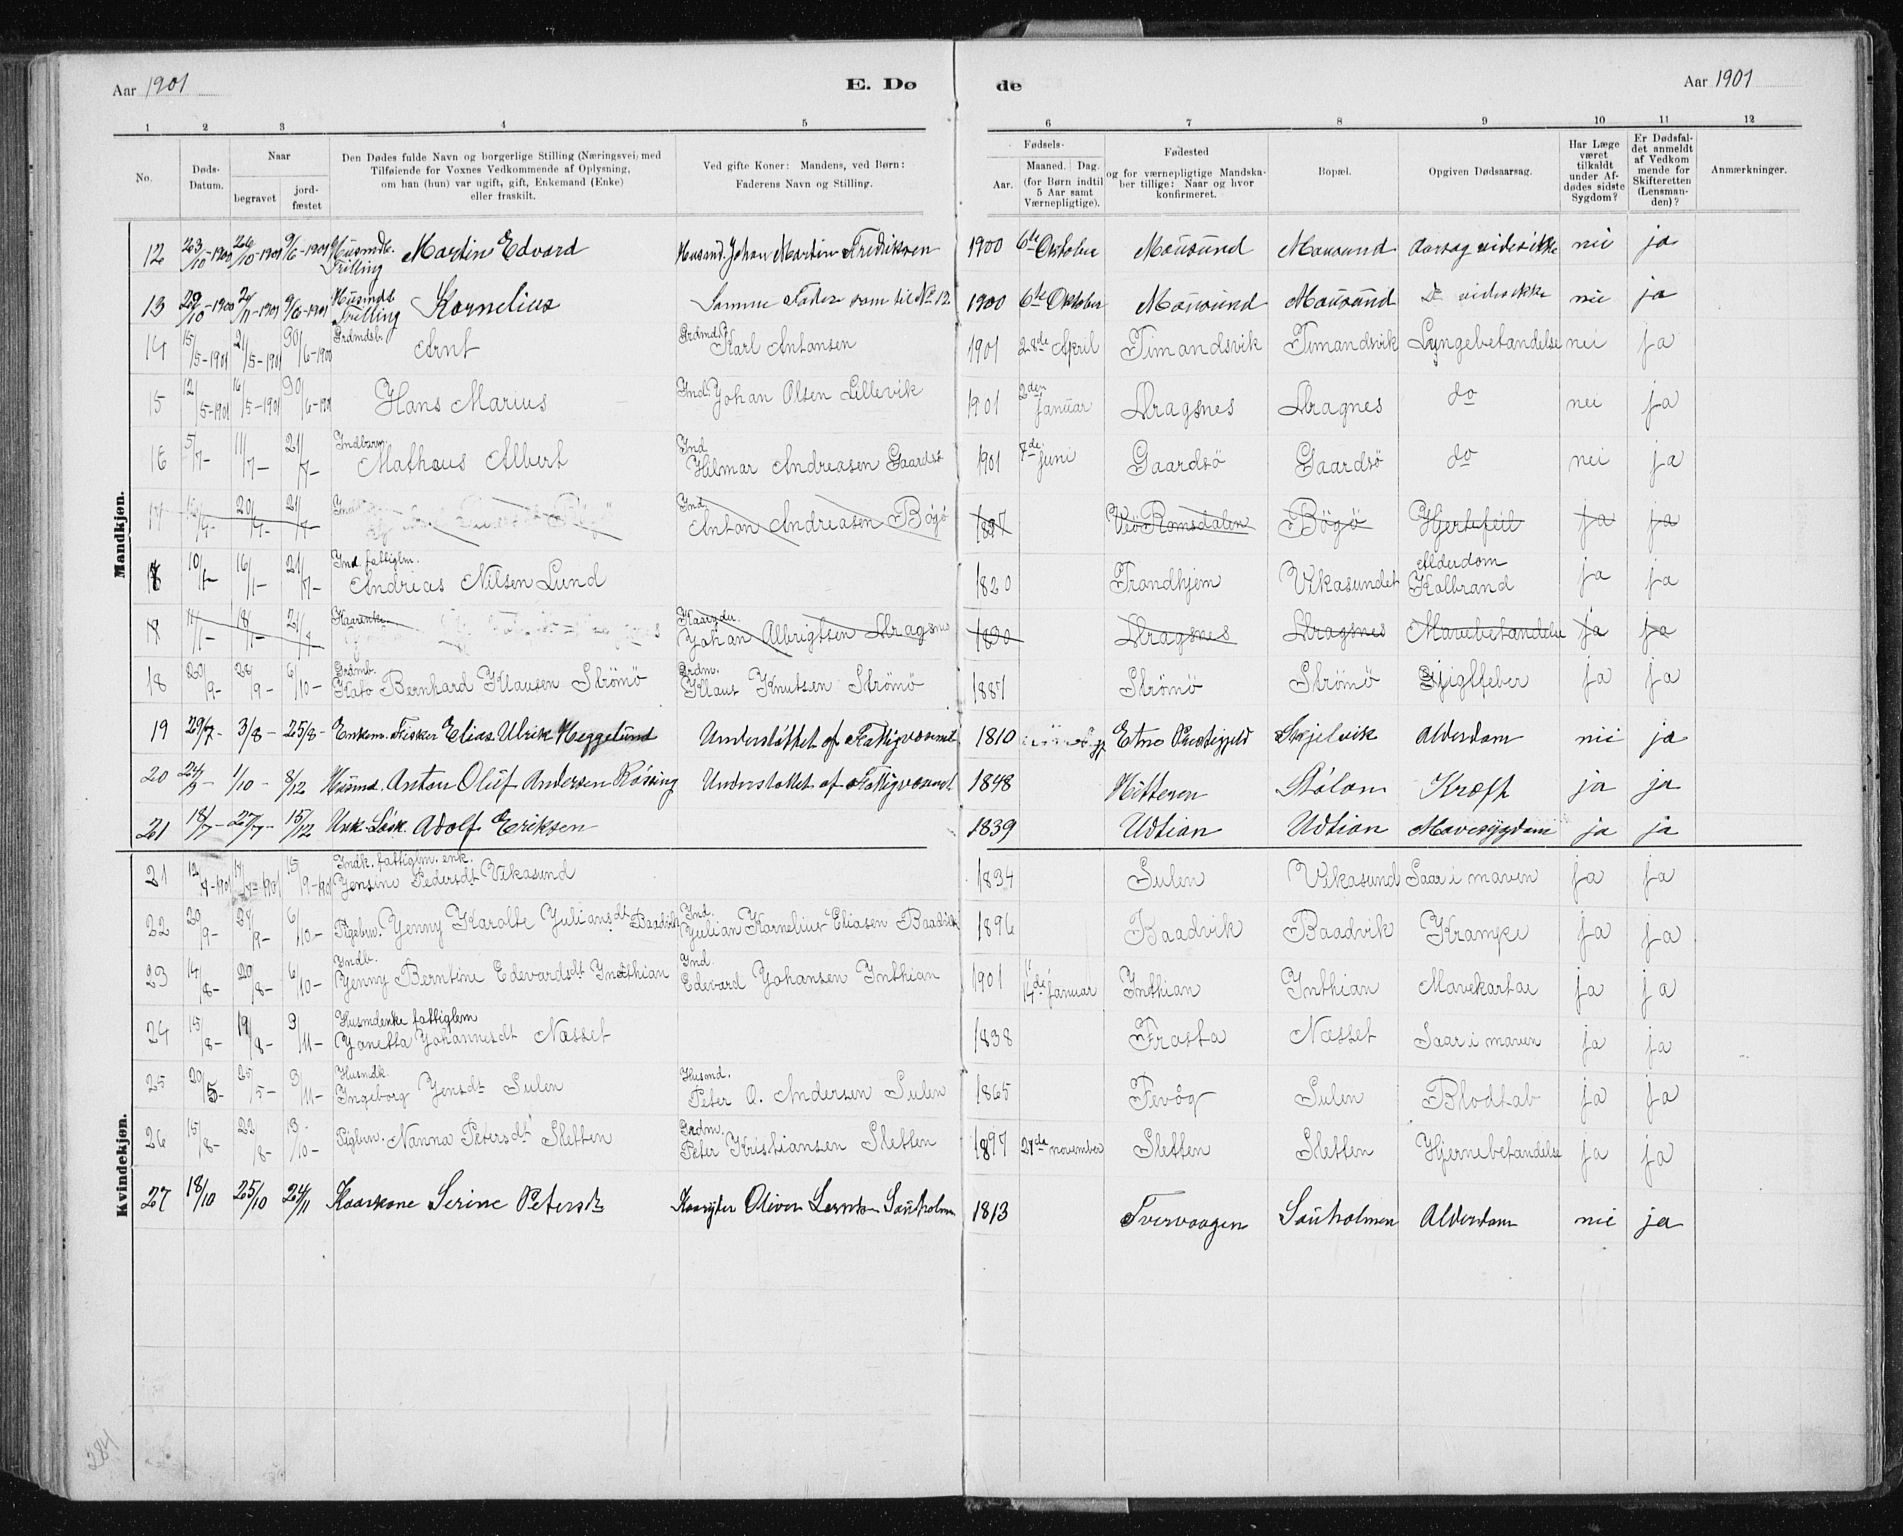 Aar 1901 E. Dø de Aar 1901
1 2 3 4 5 6 7 8 9 10 11 12
No. Døds-Datum. Naar begravet jord-fæstet Den Dødes fulde Navn og borgerlige Stilling (Næringsvei) med Tilføiende for Voxnes Vedkommende af Oplysning, om han (hun) var ugift, gift, Enkemand (Enke) eller fraskilt. Ved gifte Koner: Mandens, ved Børn: Faderens Navn og Stilling. Fødsels- Aar. Maaned. Dag. (for Børn indtil 5 Aar samt Værnepligtige). Fødested og for værnepligtige Mandskaber tillige: Naar og hvor konfirmeret. Bopæl. Opgiven Dødsaarsag. Har Læge været tilkaldt under Afdødes sidste Sygdom? Er Dødsfaldet anmeldt af Vedkommende for Skifteretten (Lensmanden)? Anmærkninger.
Mandkjøn.
12 23/10-1900 26/10-1900 9/6-1901 Husmdb. Trilling Martin Edvard Husmd. Johan Martin Fredriksen 1900 6te Oktober Mausund Mausund Aarsag vides ikke nei ja
13 29/10-1900 2/11-1901 9/6-1901 Husmdb. Trilling Kornelius Samme Fader som til No 12 1900 6te Oktober Mausund Mausund Do vides ikke nei ja
14 15/5-1901 21/5-1901 30/6-1900 Grdmdsb. Arnt Grdmds. Karl Antonsen 1901 28de April Timandsvik Timandsvik Lungebetændelse nei ja
15 12/5-1901 16/5-1901 30/6-1901 Hans Marius Ind. Johan Olsen Lillevik 1901 2den Januar Dragsnes Dragnes do nei ja
16 5/7- 11/7- 21/7- Indbarn. Mathæus Albert Ind Hilmar Andreasen Gaardsø 1901 7de juni Gaardsø Gaardsø do nei ja
17 20/7- 21/7 Ind. Anton Andreasen Bøgø Veø Romsdalen Bøgø Hjertefeil ja ja
18 10/7- 16/7- 21/7- Ind. fattiglm. Andreas Nilsen Lund 1820 Trondhjem Vikasundet Alderdom Kolbrand ja ja
18 14/7- 18/7- 21/7 Kaarenke. Kaaryder. Johan Albrigtsen Dragsnes 1830 Dragsnes Dragsnes Mavebetændelse ja ja
18 20/9- 28/9- 6/10- Grdmb. Kato Bernhard Klausen Strømø Grdm. Klaus Knutsen Strømø 1887 Strømø Strømø Gigtfeber ja ja
19 29/7- 3/8- 25/8- Enkem. Fisker Elias Ulrik Heggelund Understøttet af Fattigvæsenet 1810 Etne Præstegjeld Skjelvik Alderdom nei ja
20 24/9- 1/10- 8/12 Husmd. Anton Oluf Andersen Røssing Understøttet af Fattigvæsenet 1848 Hitteren Stølan Kræft ja ja
21 18/7- 27/7- 15/12 Adolf Eriksen 1839 Udtian Udtian Mavesygdom ja ja
Kvindekjøn.
21 12/7-1901 17/7-1901 15/9-1901 Indk. fattiglm. enk. Jensine Pedersdt Vikasund 1834 Sulen Vikasund Saar i maven ja ja
22 20/9- 28/9- 6/10- Pigebrn. Jenny Karolte Juliansdt Baadvik Ind. Julian Kornelius Eliasen Baadvik 1896 Baadvik Baadvik Krampe ja ja
23 14/8- 20/8- 6/10- Indb. Jenny Berntine Edevardsdt Inthian Ind. Edevard Johansen Inthian 1901 14de Januar Inthian Inthian Mavekartar ja ja
24 15/8- 19/8- 3/11- Husmdenke fattiglem Janetta Johannesdt Næsset 1838 Frosta Næsset Saar i maven ja ja
25 20/5- 25/5- 3/11- Husmdk. Ingeborg Jensdt Sulen Husmd. Peter O. Andersen Sulen 1865 Tevøg Sulen Blodtab ja ja
26 15/8- 22/8- 13/10- Pigbrn. Nanna Petersdt Sletten Grdm. Peter Kristiansen Sletten 1897 27de november Sletten Sletten Hjernebetændelse ja ja
27 18/10 25/10 24/11 Kaarkone Serine Petersdt Kaaryder Oliver Larntsen Sauholmen 1813 Tvervaagen Sauholmen Alderdom nei ja
284